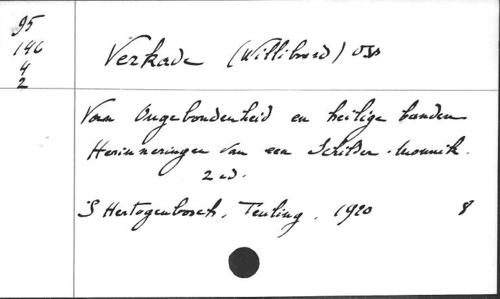 95
146
4
2
Verkade (Willibrord) OSB
Van Ongebondenheid en heilige banden
Herinneringen van een Schilder-Monnik.
2 ed.
'S Hertogenbosch, Teuling, 1920 8